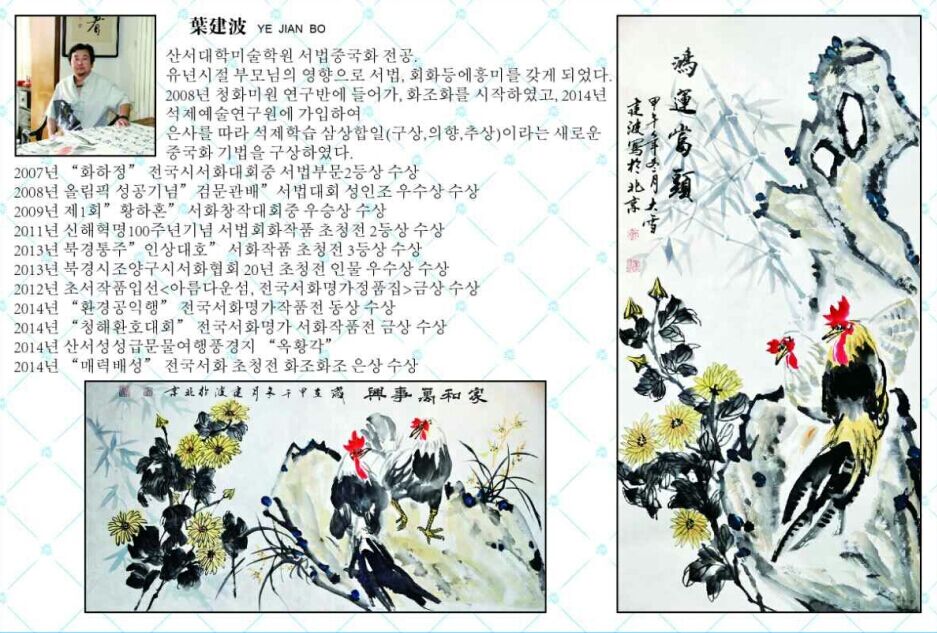 葉建波 YE JIAN BO
산서대학미술학원 서법중국화 전공.
유년시절 부모님의 영향으로 서법, 회화등에흥미를 갖게 되었다.
2008년 청화미원 연구반에 들어가, 화조화를 시작하였고, 2014년
석제예술연구원에 가입하여
은사를 따라 석제학습 삼상합일(구상,의향,추상)이라는 새로운
중국화 기법을 구상하였다.
2007년 “화하정” 전국시서화대회중 서법부문2등상 수상
2008년 올림픽 성공기념” 검문관배” 서법대회 성인조 우수상 수상
2009년 제1회” 황하혼” 서화창작대회중 우승상 수상
2011년 신해혁명100주년기념 서법회화작품 초청전 2등상 수상
2013년 북경통주” 인상대호” 서화작품 초청전 3등상 수상
2013년 북경시조양구시서화협회 20년 초청전 인물 우수상 수상
2012년 초서작품입선<아름다운섬, 전국서화명가정품집>금상 수상
2014년 “환경공익행” 전국서화명가작품전 동상 수상
2014년 “청해환호대회” 전국서화명가 서화작품전 금상 수상
2014년 산서성성급문물여행풍경지 “옥황각”
2014년 “매력배성” 전국서화 초청전 화조화조 은상 수상
家和萬事興
歲在甲午冬月建波於北京
鴻運當頭
甲午年冬月大雪
建波寫於北京